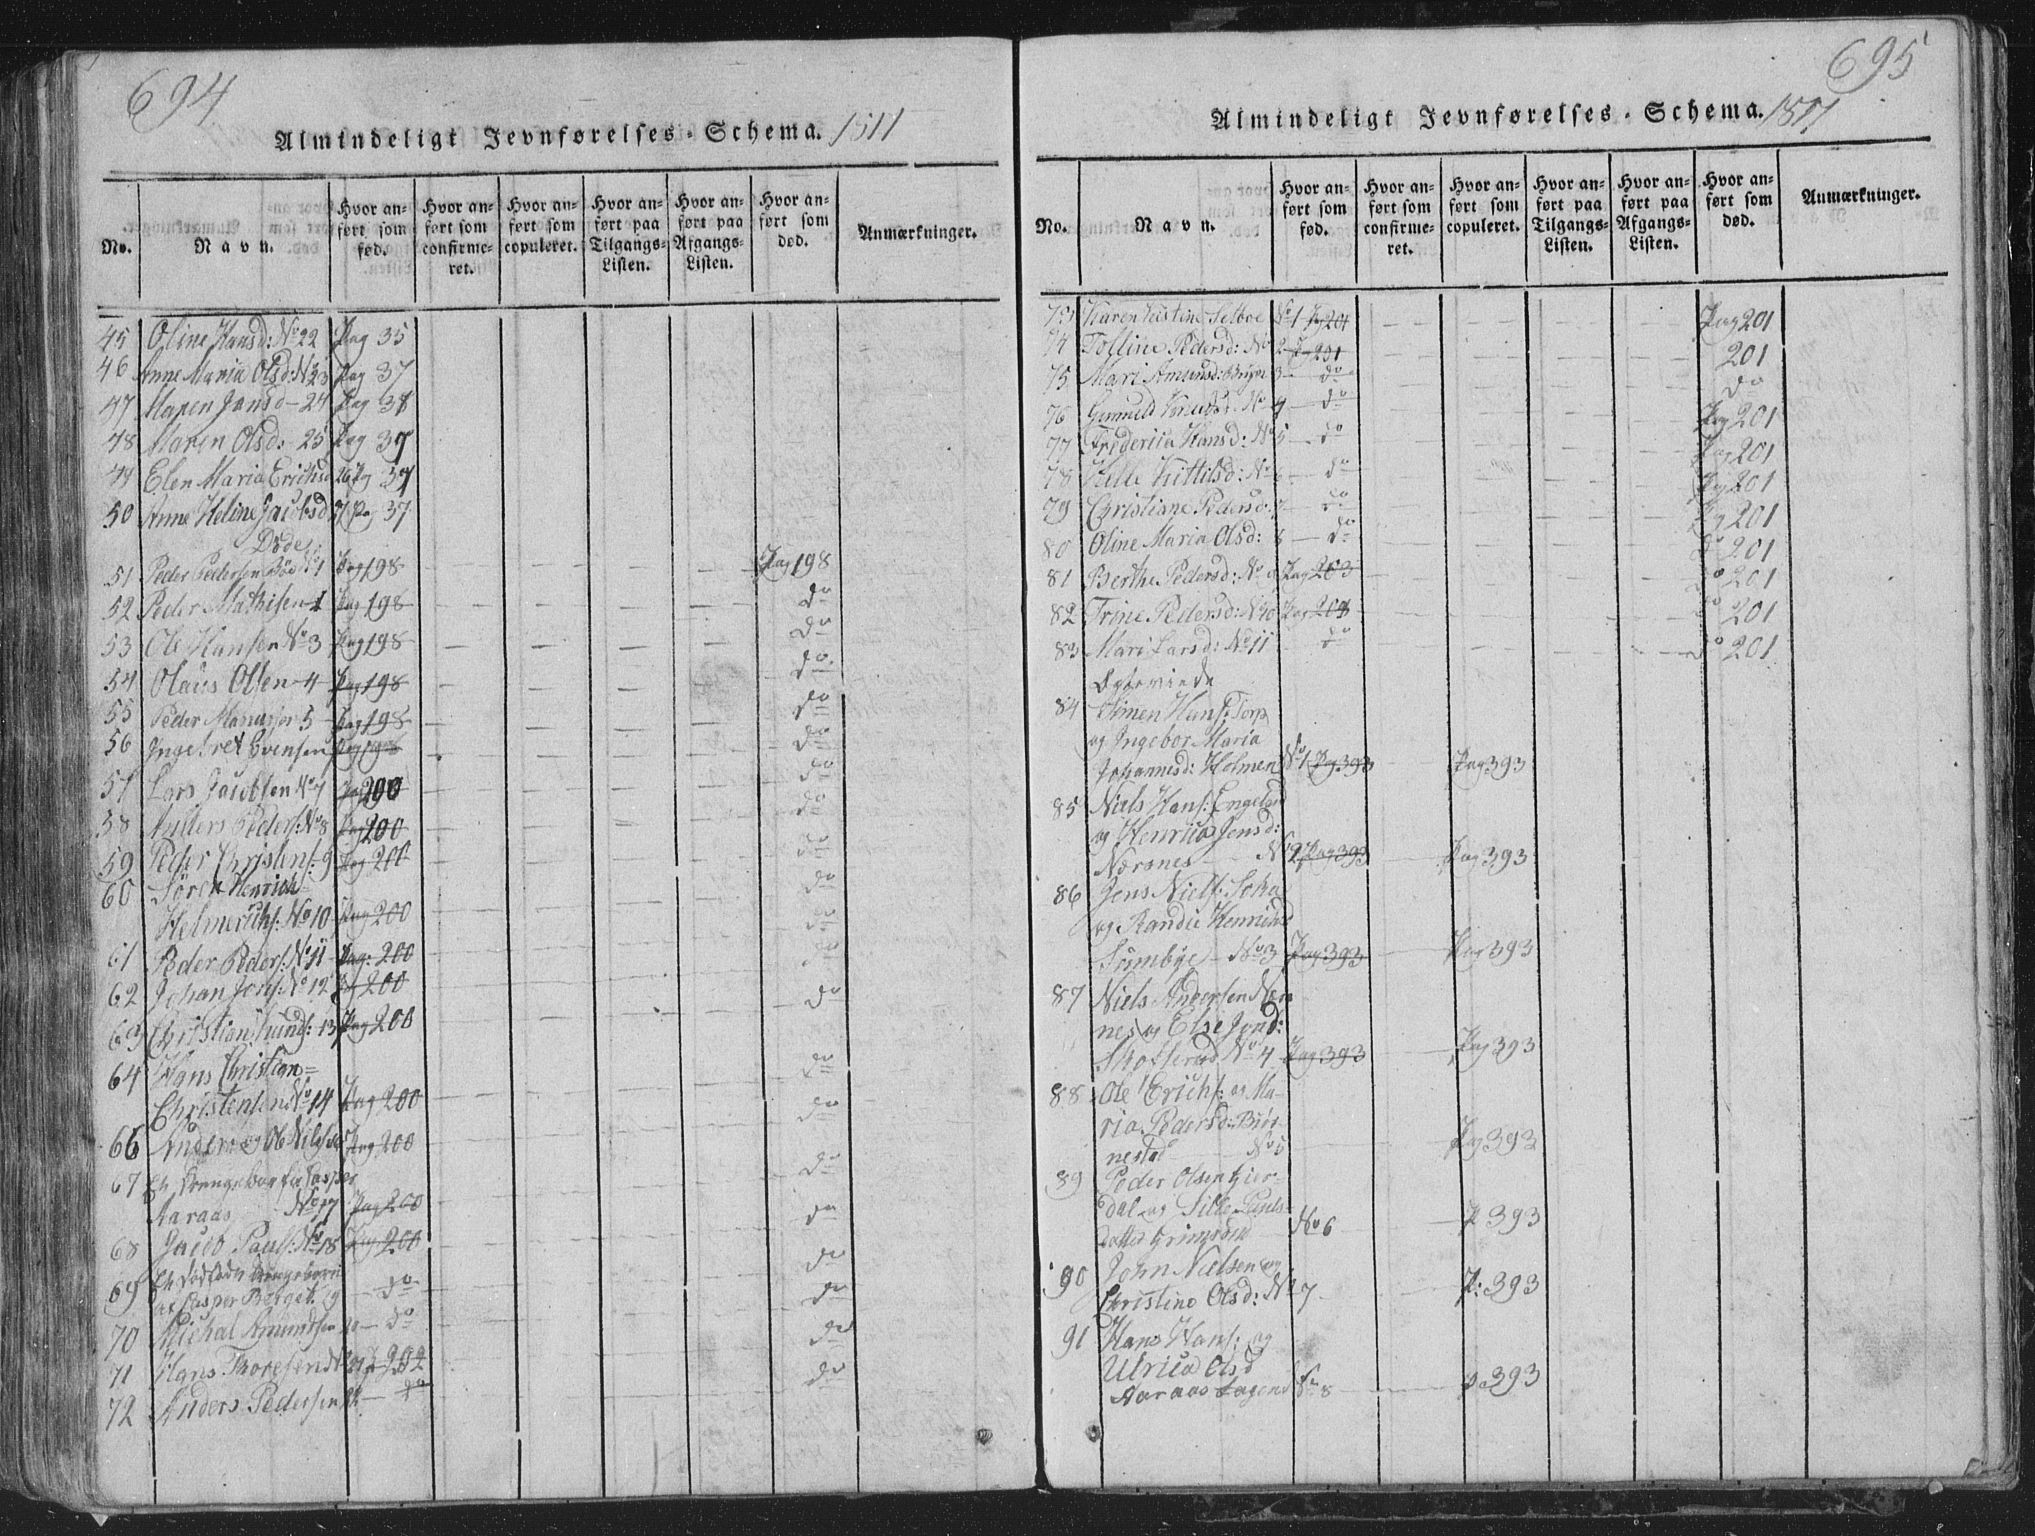 694
Almindeligt Jevnførelses-Schema. 1817
No.
Navn.
Hvor an-ført som fød.
Hvor an-ført som confirme-ret.
Hvor an-ført som copuleret.
Hvor an-ført paa Tilgangs-Listen.
Hvor an-ført paa Afgangs-Listen.
Hvor an-ført som død.
Anmærkninger.
45 Oline Hansd: No 22 Pag 35
46 Anne Maria Olsd: No 23 Pag 37
47 Maren Jansd - 24 Pag 37
48 Maren Olsd: 25 Pag 37
49 Elen Maria Erichsd 26 Pag 37
50 Anne Heline Jacobsd 27 Pag 37
Døde
51 Peder Pedersen Bøe No 1 Pag 198 Pag 198
52 Peder Mathisen Pag 198 do
53 Ole Hansen No 3 Pag 198 do
54 Olaus Olsen - 4 Pag 198 do
55 Peder 5 Pag 198 do
56 Ingebret Evensen do
57 Lars Jacobsen No 7 Pag 200 do
58 Anders Peders: No 8 Pag 200 do
59 Peder Christens: 9 Pag 200 do
60 Sören Henrich
Helmerichs: No 10 Pag 200 do
61 Peder Peders: No 11 Pag: 200 do
62 Johan Jons: No 12 Pag 200 do
63 Christian 13 Pag 200 do
64 Hans Christian=
Christensen No 14 Pag 200 do
66 Anders og Ole Nilsen Pag 200 do
67 Et Drengebarn for Casper
Aaraas No 17 Pag 200 do
68 Jacob Pauls: No 18 Pag 200 do
69 Et dødfødt Drengebarn
af Casper Berget. 19 do do
70 Michal Amundsen 20 - do do
71 Hans Thoresen No 21 202 do
72 Anders Pedersen 22 - do do
695
Almindeligt Jevnførelses-Schema. 1817
No.
Navn.
Hvor an-ført som fød.
Hvor an-ført som confirme-ret.
Hvor an-ført som copuleret.
Hvor an-ført paa Tilgangs-Listen.
Hvor an-ført paa Afgangs-Listen.
Hvor an-ført som død.
Anmærkninger.
73 Karen Kistine Selboe No 1 Pag 201 Pag 201
74 Tolline Pedersd: No 2 Pag 201 201
75 Mari Amunsd: 3 - do do
76 Gunnild No 4 - do Pag 201
77 Frederica Hansd: No 5 - do Pag 201
78 Kittilsd: No 6 - do Pag 201
79 Christiane Pedersd: 7 do Pag 201
80 Oline Maria Olsd: 8 - do do 201
81 Berthe Pedersd: No 9 Pag 203 do 201
82 Trine Pedersd: No 10 Pag 203 do 201
83 Mari Larsd: No 11 do do 201
Egteviede
84 Simen Hans: Torp
og Ingebor Maria
Johannesd: Holmen No 1 Pag 393 Pag 393
85 Niels Hans: Engelund
og Henrica Jensd:
Nærsnes No 2 Pag 393 Pag 393
86 Jens Niels:
og Randie Henrichsd
Sumbye - No 3 Pag 393 Pag 393
87 Niels Andersen Nær
nes og Else Jond:
No 4 Pag 393 Pag 393
88 Ole Erichs: og Ma-
ria Pedersd: Biør
nestad No 5 Pag 393
89 Peder Olsen Gjer=
dal og Sille
datter Grimsrud No 6 P 393
90 John Nielsen og
Christine Olsd: No 7 P: 393
91 Hans Hans: og
Ulrica Olsd
Aaraas No 8 P 393